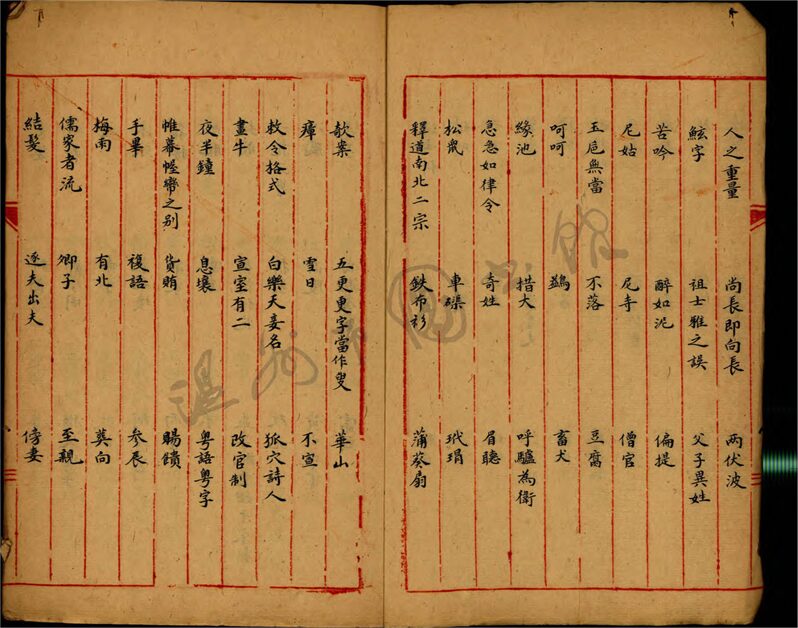 人之重量　尚長即向長　兩伏波
鮌字　祖士雅之誤　父子異姓
苦吟　醉如泥　偏提
尼姑　尼寺　僧官
玉巵無當　不落　豆腐
呵呵　鷀　畜犬
緣池　措大　呼驢為衛
急急如律令　奇姓　眉聽
松䑕　車磲　玳瑁
釋道南北二宗　鉄布衫　蒲葵扇
欹案　五更更字當作叟　華山
瘴　雪日　不宣
敕令格式　白樂天妾名　狐穴詩人
畫牛　宣室有二　改官制
夜半鐘　息壤　粤語粤字
帷幕幄帟之别　貨賄　賜饋
手畢　複語　參辰
梅雨　有北　莫向
儒家者流　卿子　至親
結髮　逐夫出夫　傍妻
溫州市圖書館